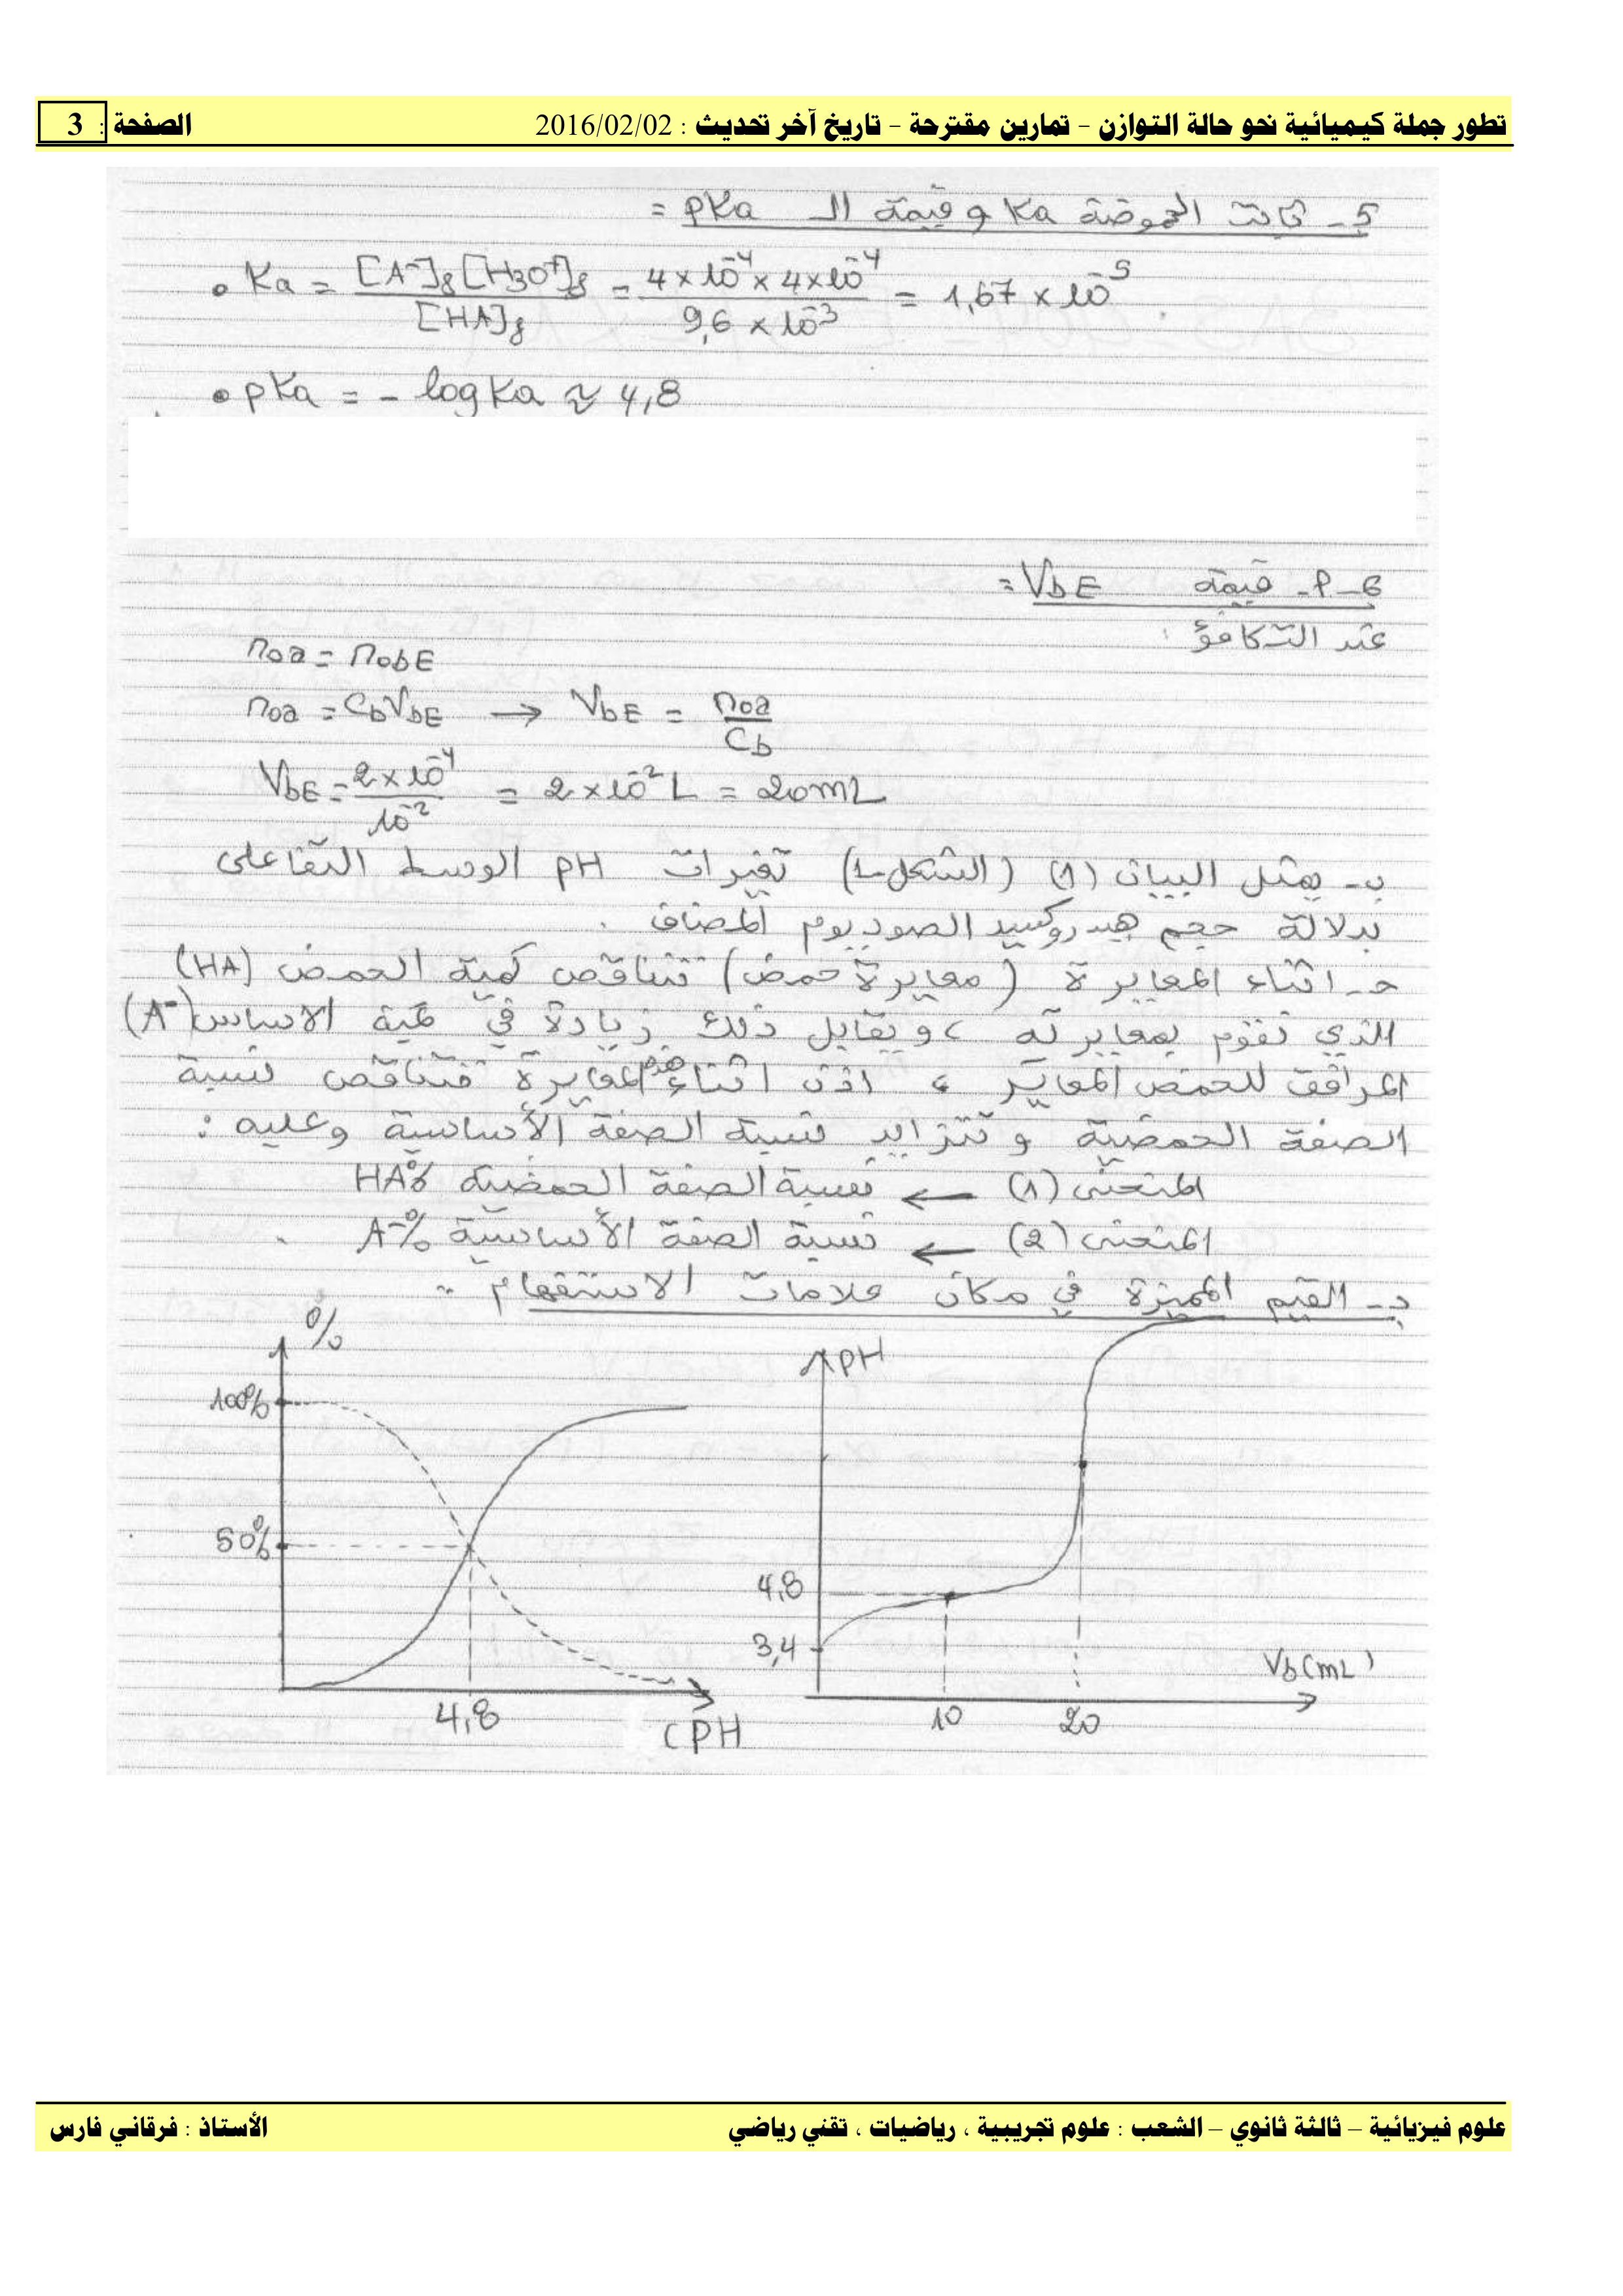 تطور جملة كيميائية نحو حالة التوازن – تمارين مقترحة – تاريخ آخر تحديث : 2016/02/02 الصفحة : 3
5- ثابت الحموضة Ka وقيمة الـ pKa =
• Ka = [A⁻]f [H3O⁺]f / [HA]f = 4 × 10⁻⁴ × 4 × 10⁻⁴ / 9,6 × 10⁻³ = 1,67 × 10⁻⁵
• pKa = - log Ka ≈ 4,8
6-أ- قيمة VbE =
عند التكافؤ :
n0a = n0bE
n0a = CbVbE → VbE = n0a / Cb
VbE = 2 × 10⁻⁴ / 10⁻² = 2 × 10⁻² L = 20 mL
ب- يمثل البيان (1) (الشكل-1) تغيرات pH الوسط التفاعلي
بدلالة حجم هيدروكسيد الصوديوم المضاف .
حـ- اثناء المعايرة (معايرة حمض) تتناقص كمية الحمض (HA)
الذي نقوم بمعايرته ، ويقابل ذلك زيادة في كمية الاساس (A⁻)
المرافق للحمض المعاير ، اذن اثناء هذه المعايرة تتناقص نسبة
الصفة الحمضية و تتزايد نسبة الصفة الأساسية وعليه :
المنحنى (1) ← نسبة الصفة الحمضية HA%
المنحنى (2) ← نسبة الصفة الأساسية A⁻% .
د- القيم المميزة في مكان علامات الاستفهام :
%
100%
50%
4,8
(PH
PH
4,8
3,4
10
20
Vb(mL)
علوم فيزيائية – ثالثة ثانوي – الشعب : علوم تجريبية ، رياضيات ، تقني رياضي الأستاذ : فرقاني فارس